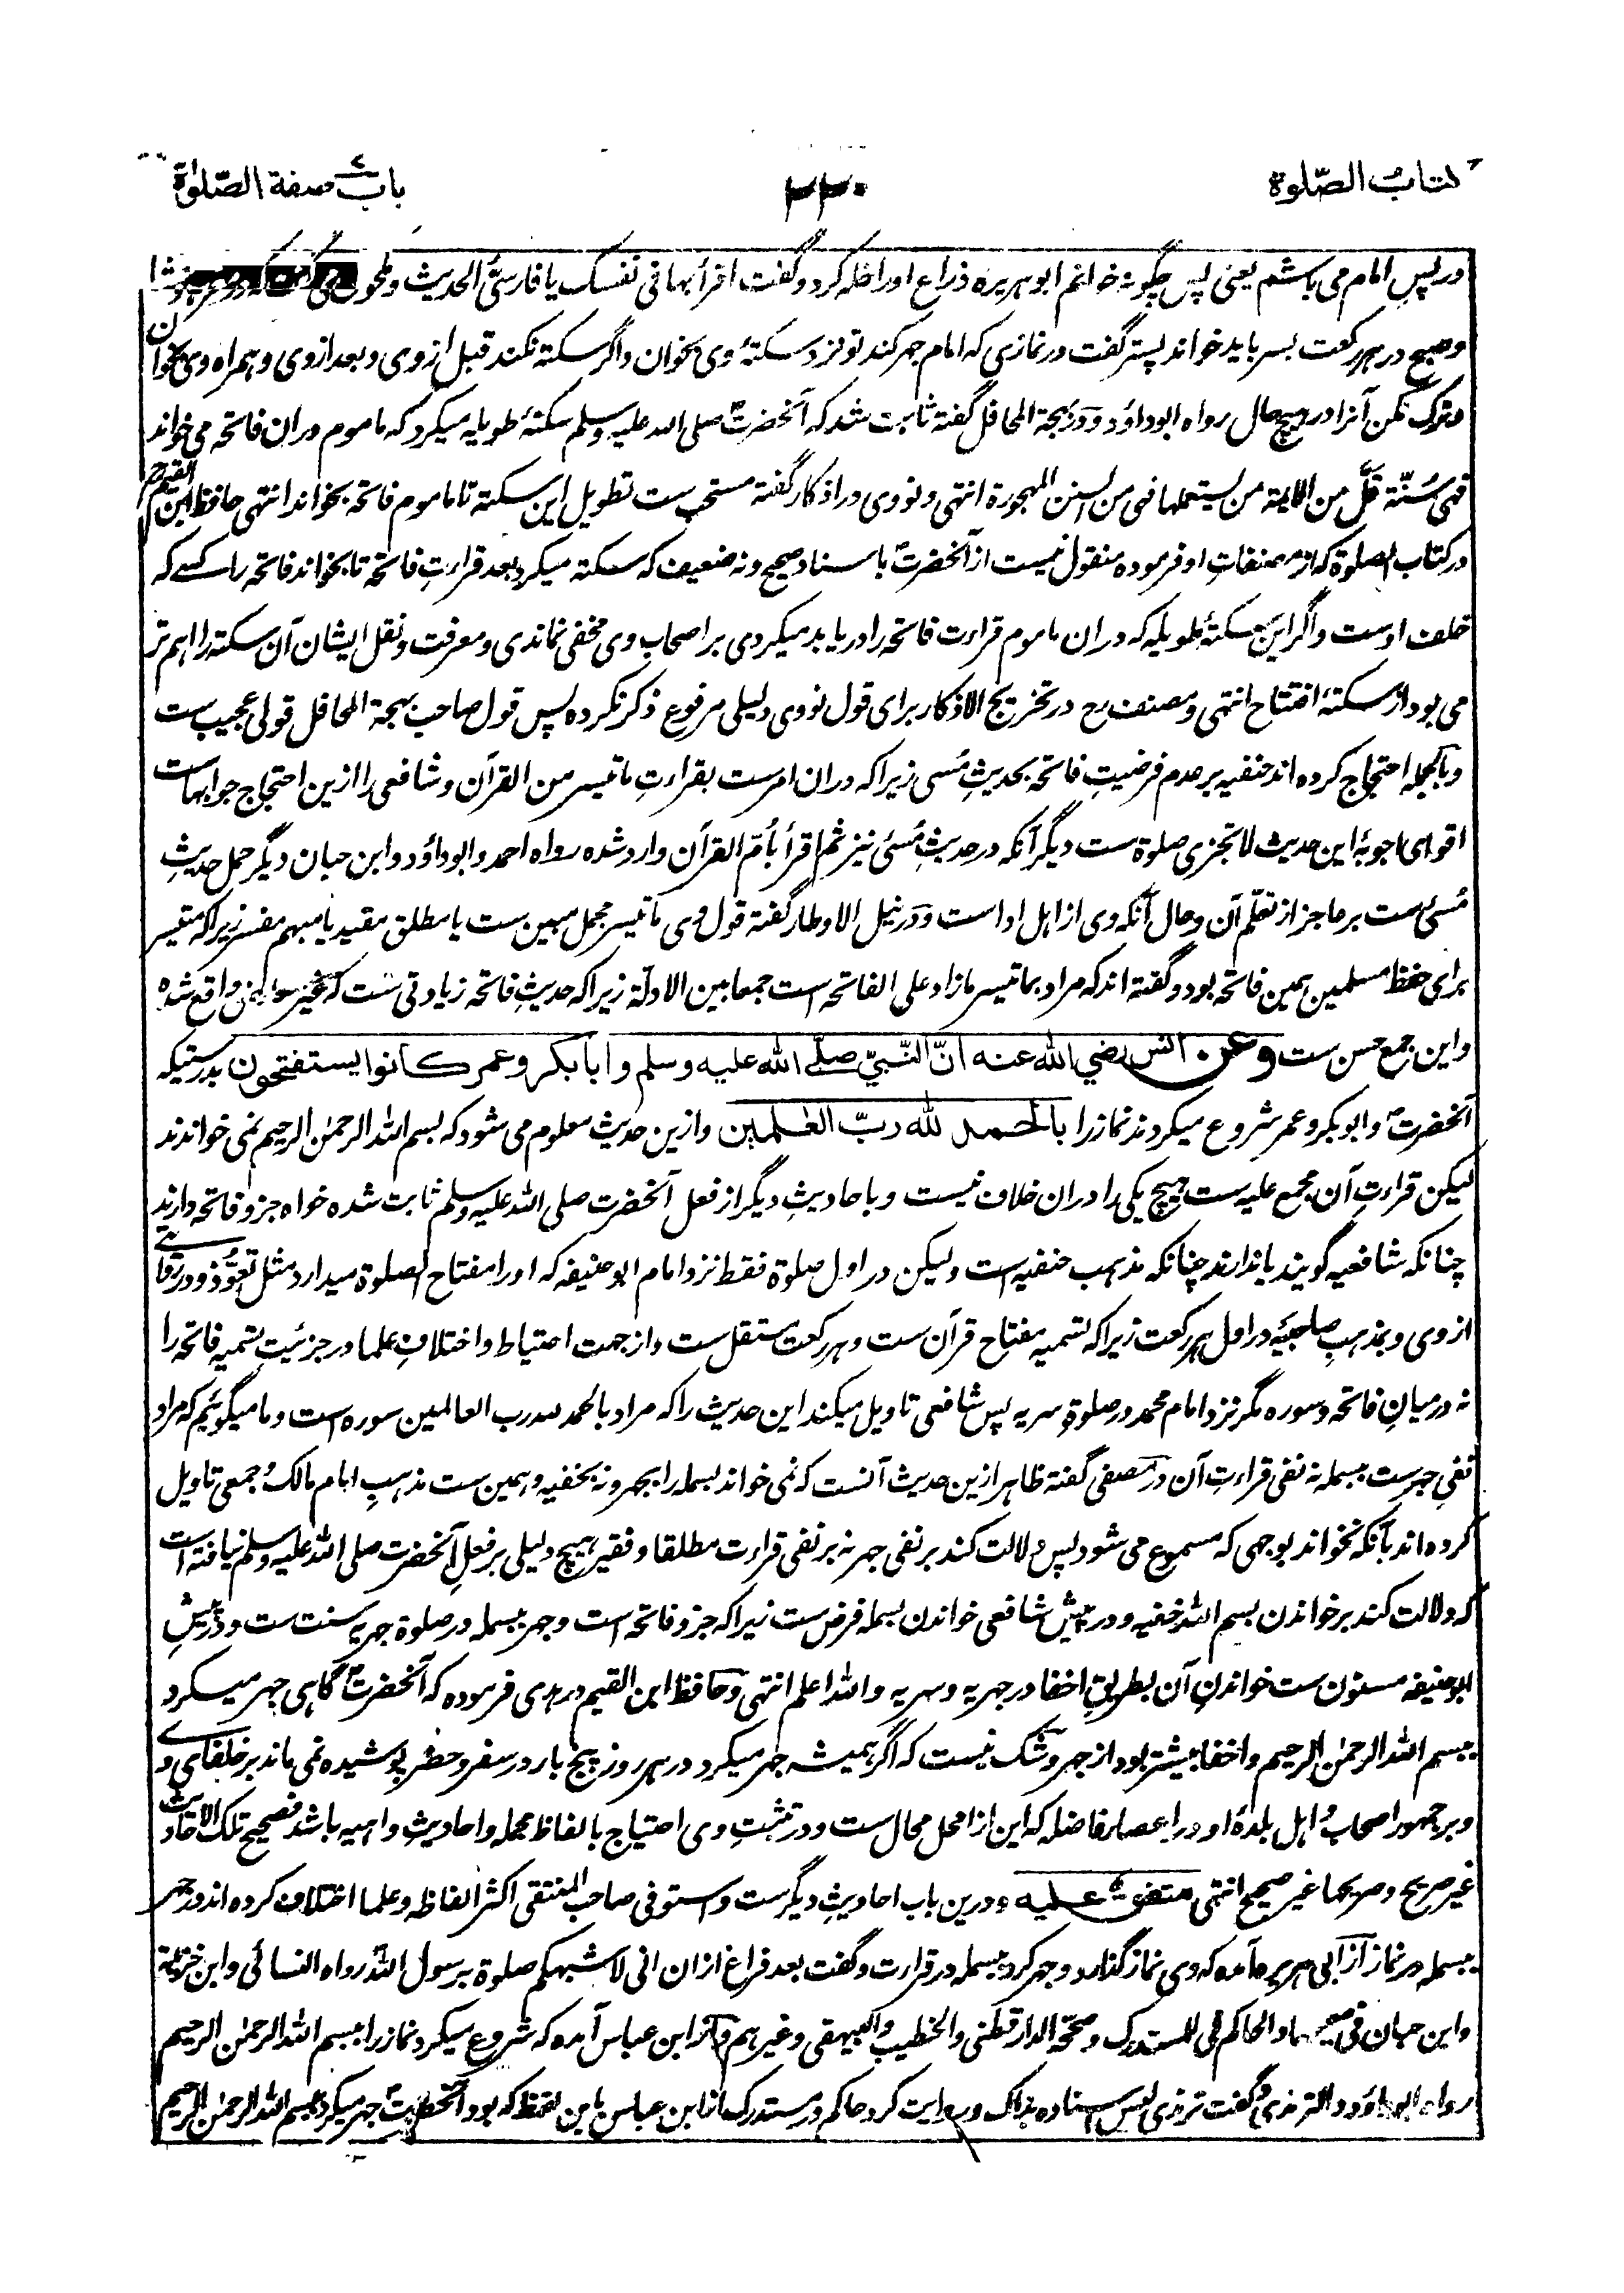 کتاب الصّلوة
۲۲۰
باب صفة الصّلوٰة
در پس امام می باشم یعنی پس چگونه خوانم ابو هریره ذراع او را خله کرد و گفت اقرأ بها فی نفسک یا فارسیّ الحدیث و مکحول می گفت که در مغرب و عشا
و صبح در هر رکعت بسر باید خواند پستر گفت در نمازی که امام جهر کند تو نزد سکتهٔ وی بخوان و اگر سکته نکند قبل از وی و بعد از وی و همراه وی بخوان
و ترک نکن آنرا در هیچ حال رواه ابو داؤد و در بهجة المحافل گفته ثابت شد که آنحضرت صلی الله علیه وسلم سکتهٔ طویله میکرد که ماموم دران فاتحه می خواند
فهی سُنّة قَلَّ من الایمة من یستعملها فهی من السنن المهجورة انتهی و نووی در اذکار گفته مستحب ست تطویل این سکته تا ماموم فاتحه بخواند انتهی حافظ ابن القیم رح
در کتاب الصلوة که از مصنفاتِ او فرموده منقول نیست از آنحضرت باسناد صحیح و نه ضعیف که سکته میکرد بعد قراءتِ فاتحه تا بخواند فاتحه را کسے که
خلف اوست و اگر این سکتهٔ طویله که دران ماموم قراءت فاتحه را دریابد میکردی بر اصحاب وی مخفی نماندی و معرفت و نقل ایشان آن سکته را اهم تر
می بود از سکتهٔ افتتاح انتهی و مصنف رح در تخریج الاذکار برای قول نووی دلیلی مرفوع ذکر نکرده پس قول صاحب بهجة المحافل قولی عجیب ست
و بالجمله احتجاج کرده اند حنفیه بر عدم فرضیتِ فاتحه بحدیثِ مُسی زیرا که دران امرست بقراءتِ ما تیسر من القرآن و شافعی را ازین احتجاج جوابهاست
اقوای اجوبهٔ این حدیث لا تجزی صلوة ست دیگر آنکه در حدیثِ مُسئی نیز ثم اقرأ بأمّ القرآن وارد شده رواه احمد و ابو داؤد و ابن حبان دیگر حمل حدیثِ
مُسئ ست بر عاجز از تعلّم آن و حال آنکه وی از اهل اداست و در نیل الاوطار گفته قول وی ما تیسر مجمل مبین ست یا مطلق مقید یا مبهم مفسر زیرا که متیسر
برای حفظ مسلمین همین فاتحه بود و گفته اند که مراد بما تیسر ما زاد علی الفاتحه است جمعا بین الادلّة زیرا که حدیثِ فاتحه زیادتی ست که غیر معارض واقع شده
و این جمع حسن ست وعن انس رضي الله عنه انّ النّبيّ صلّى الله عليه وسلم وابا بكر وعمر كانوا يستفتحون بدرستیکه
آنحضرت و ابو بکر و عمر شروع میکردند نماز را بالحمد لله ربّ العٰلمين و ازین حدیث معلوم می شود که بسم الله الرحمٰن الرحیم نمی خواندند
لیکن قراءتِ آن مجمع علیه ست هیچ یکی را دران خلاف نیست و باحادیثِ دیگر از فعل آنحضرت صلی الله علیه وسلم ثابت شده خواه جزو فاتحه دارند
چنانکه شافعیه گویند یا ندارند چنانکه مذهب حنفیه است ولیکن در اول صلوة فقط نزد امام ابو حنیفه که او را مفتاح الصلوة میدارد مثل تعوُّذ و در روایتے
از وی و بمذهبِ صاحبیه در اول هر رکعت زیرا که تسمیه مفتاح قرآن ست و هر رکعت مستقل ست و از جهت احتیاط و اختلافِ علما در جزئیتِ تسمیه فاتحه را
نه درمیانِ فاتحه و سوره مگر نزد امام محمد در صلوةِ سریه پس شافعی تاویل میکند این حدیث را که مراد بالحمد لله رب العالمین سوره است و ما میگوئیم که مراد
نفی جهرست ببسمله نه نفی قراءتِ آن در مصفی گفته ظاهر ازین حدیث آنست که نمی خواند بسمله را بجهر و نه بخفیه و همین ست مذهبِ امام مالک و جمعی تاویل
کرده اند بآنکه نخواند بوجهی که مسموع می شود پس دلالت کند بر نفی جهر نه بر نفی قراءت مطلقا و فقیر هیچ دلیلی بر فعلِ آنحضرت صلی الله علیه وسلم نیافته است
که دلالت کند بر خواندن بسم الله خفیه و در پیش شافعی خواندن بسمله فرض ست زیرا که جزو فاتحه است و جهر ببسمله در صلوة جهریه سنت ست و در پیشِ
ابو حنیفه مسنون ست خواندنِ آن بطریقِ اخفا در جهریه و سریه و الله اعلم انتهی و حافظ ابن القیم در هدی فرموده که آنحضرت گاهی جهر میکرد
ببسم الله الرحمٰن الرحیم و اخفا بیشتر بود از جهر و شک نیست که اگر همیشه جهر میکرد در هر روز پنج بار در سفر و حضر پوشیده نمی ماند بر خلفای وے
و بر جمهور اصحاب و اهل بلدهٔ او در اعصار فاضله که این از امحل محال ست و در تثبتِ وی احتیاج بالفاظ مجمله و احادیثِ واهیه باشد فصحیح تلک الاحادیث
غیر صریح و صریحها غیر صحیح انتهی متفق علیه و درین باب احادیثِ دیگرست و استوفی صاحب المنتقی اکثر الفاظه و علما اختلاف کرده اند در جهر
ببسمله در نماز از ابی هریره آمده که وی نماز گذارد و جهر کرد ببسمله در قراءت و گفت بعد فراغ ازان انی لاشبهکم صلوة برسول الله رواه النسائی و ابن خزیمة
و ابن حبان فی صحیحهما و الحاکم فی المستدرک و صححه الدارقطنی و الخطیب و البیهقی و غیرهم و از ابن عباس آمده که شروع میکرد نماز را ببسم الله الرحمٰن الرحیم
رواه ابو داؤد و الترمذی و گفت ترمذی لیس اسناده بذاک و روایت کرد حاکم در مستدرک از ابن عباس باین لفظ که بود آنحضرت جهر میکرد ببسم الله الرحمٰن الرحیم